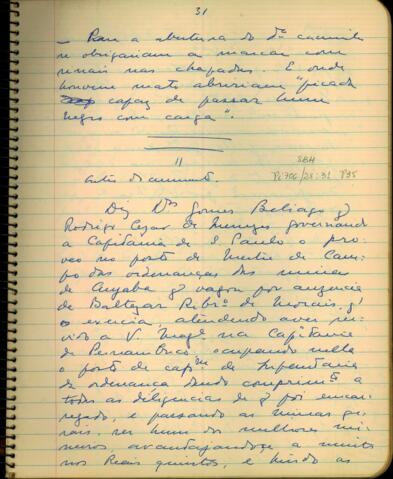 31
— Para a abertura do dº caminho
se obrigariam a marcar com
sinais nas chapadas. E onde
houvesse mato abririam "picada
capaz de passar hum
negro com carga".
"
Outro documento.
SBH
Pc706/28:31 P35
Diz Dos Gomes Beliago q
Rodrigo Cezar de Menezes governando
a Capitania de S. Paulo o pro-
veo no posto de Mestre de Cam-
po das ordenanças das minas
de Cuyaba q vagou por auzencia
de Baltezar Ribrº de Morais, q
o exercia, atendendo aver ser-
vido a V. Magᵉ na Capitania
de Pernambuco, ocupando nella
o posto de capᵃᵐ de Infantaria
de ordenança dando comprimtº a
todas as diligencias de q foi encar-
regado, e passando as minas ge-
rais, ser hum dos melhores mi-
neiros, avantajandosse a muitos
nos Reais quintos, e hindo as